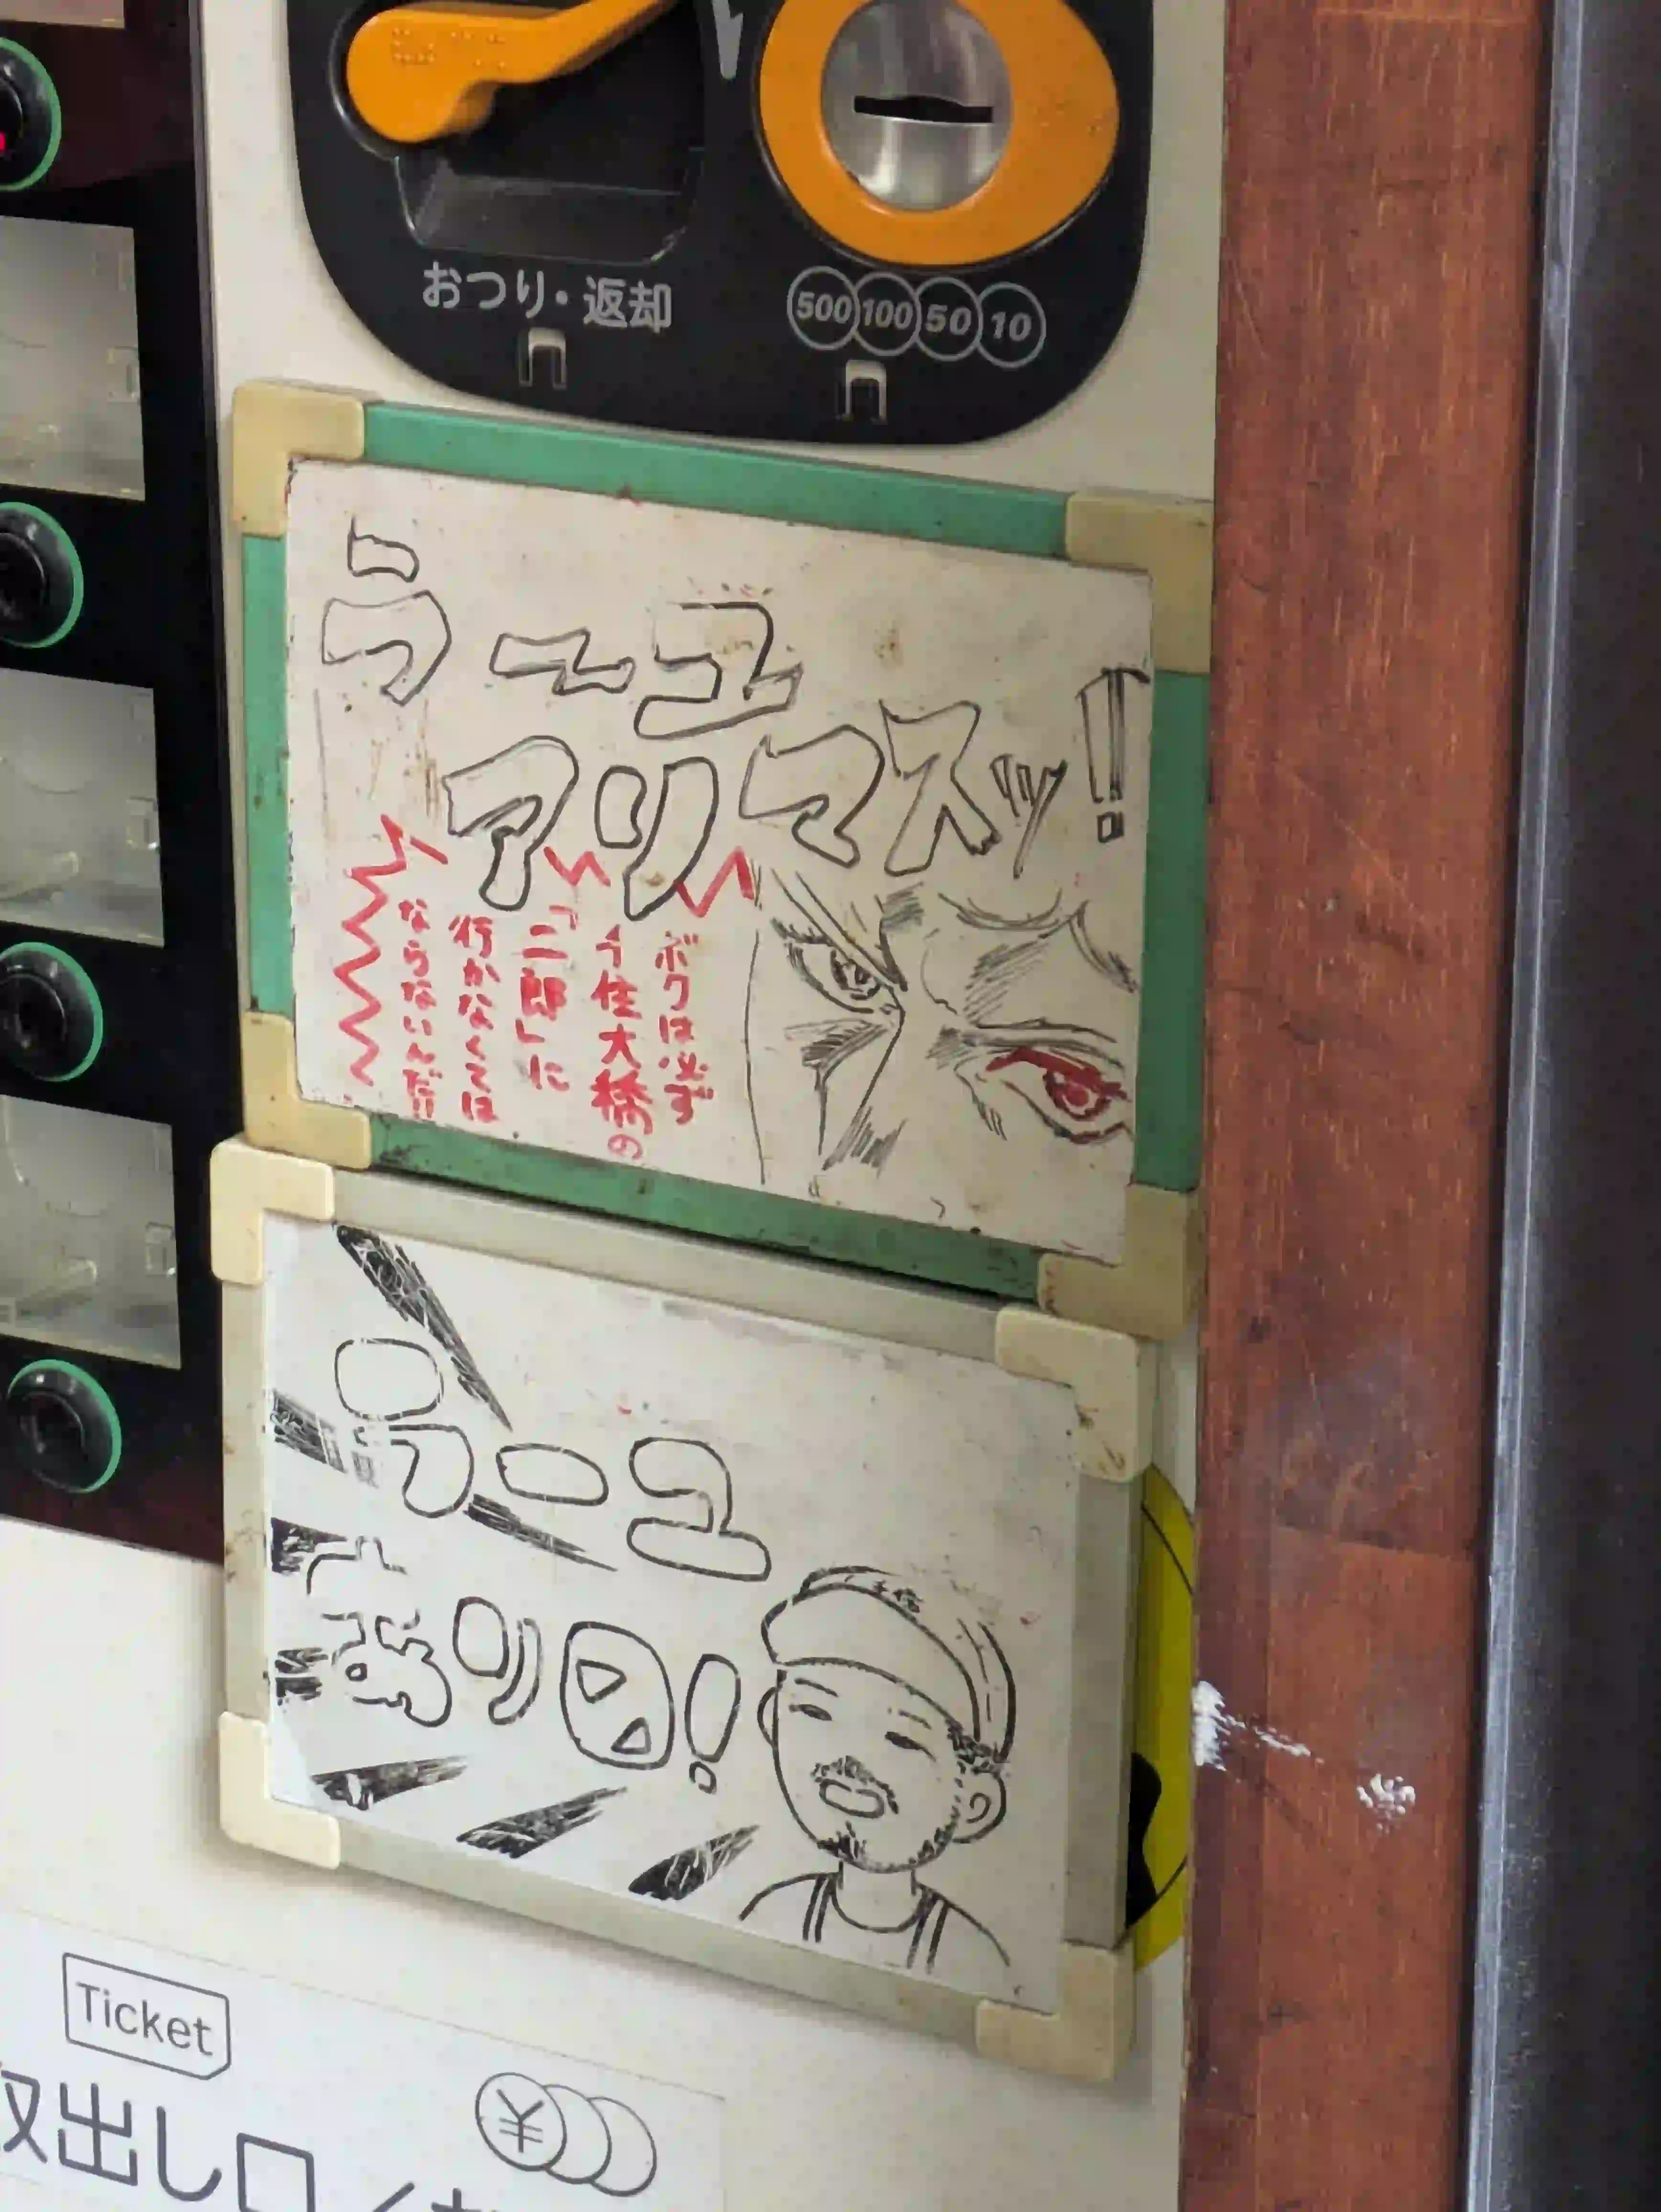 おつり・返却
500 100 50 10
うーユ
アリマスッ!!
ボクは必ず
千住大橋の
「二郎」に
行かなくては
ならないんだ!!
ラーユ
あります!
Ticket
取出し口
¥